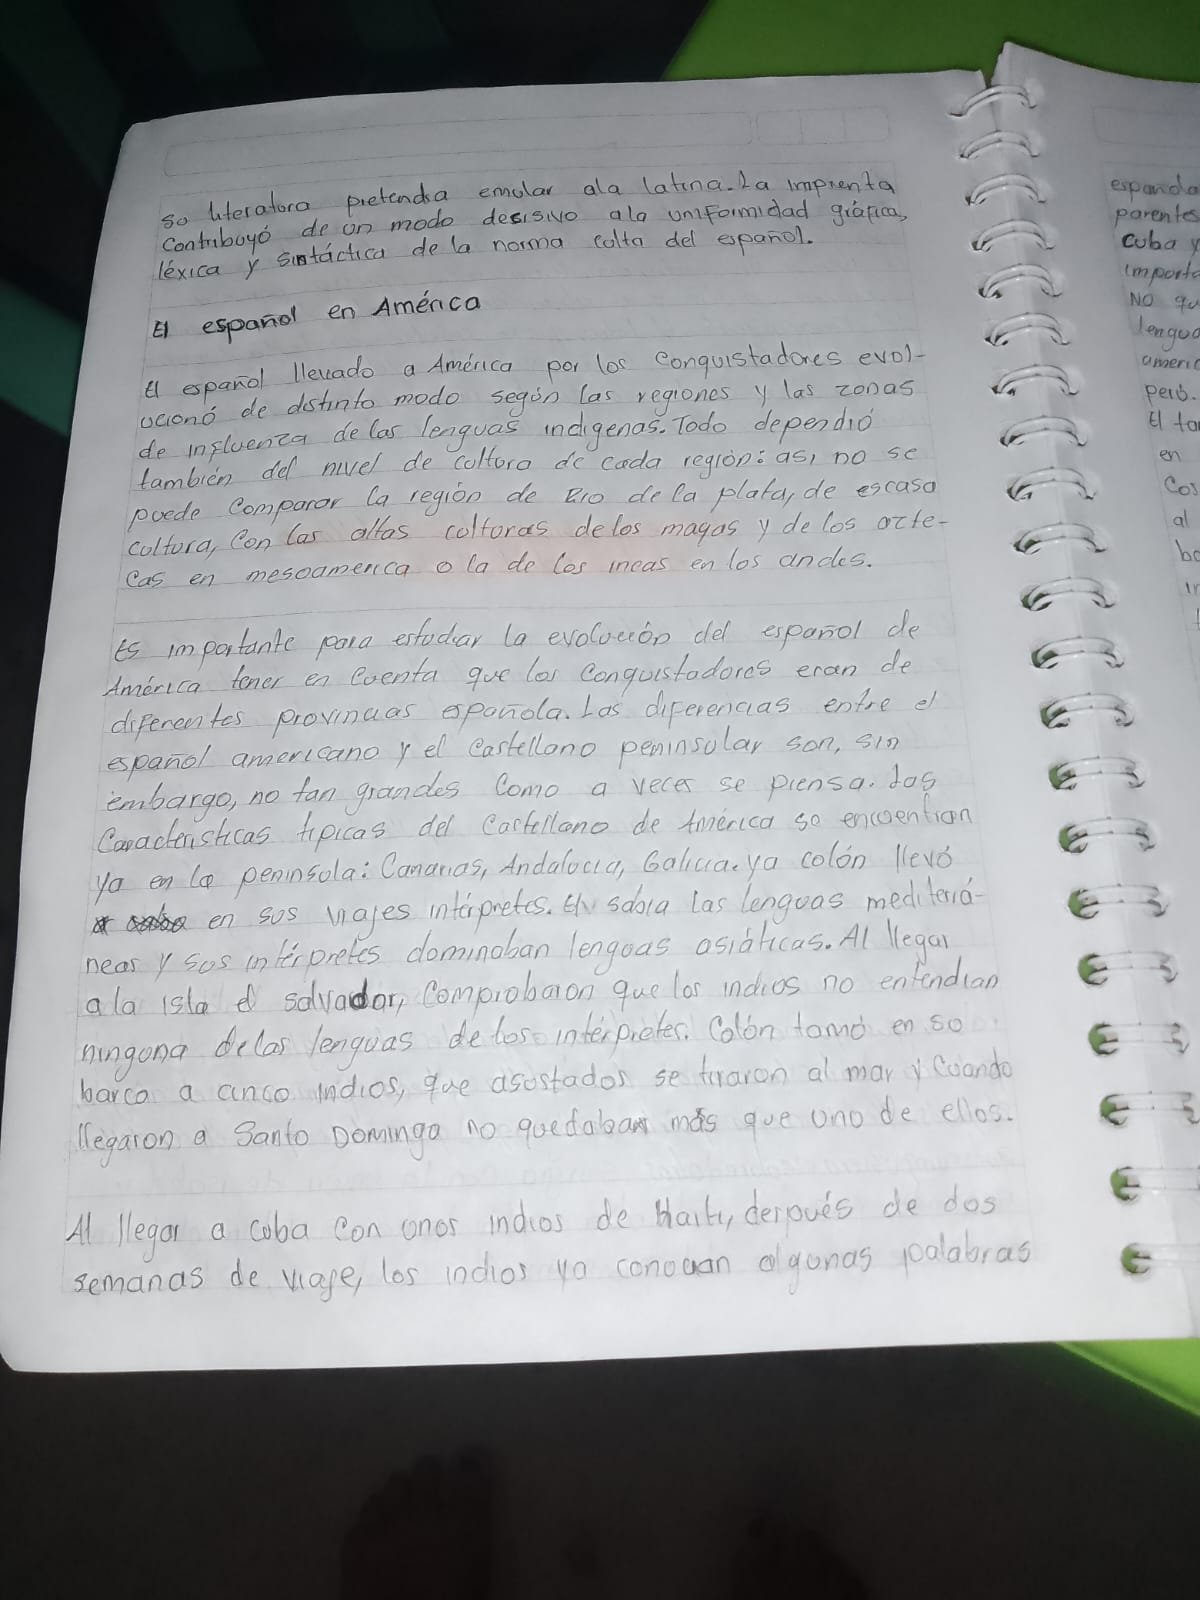 su literatura pretendia emular ala latina. La imprenta
Contribuyó de un modo desisivo ala uniformidad gráfica,
léxica y sintáctica de la norma culta del español.
El español en América
El español llevado a América por los Conquistadores evol-
ucionó de distinto modo según las regiones y las zonas
de influenza de las lenguas indigenas. Todo dependió
también del nivel de cultura de cada región: asi, no se
puede comparar la región de Rio de la plata, de escasa
cultura, con las altas culturas de los magas y de los azte-
cas en mesoamerica o la de los incas en los andes.
Es importante para estudiar la evolución del español de
América tener en cuenta que los Conquistadores eran de
diferentes provincias española. Las diferencias entre el
español americano y el castellano peninsular son, sin
embargo, no tan grandes como a veces se piensa. Las
Características tipicas del castellano de América se encuentran
ya en la peninsola: Canarias, Andalucia, Galicia. ya colón llevó
en sus viajes intérpretes. El sabia las lenguas mediterrá-
neas y sus intérpretes dominaban lenguas asiáticas. Al llegar
a la isla el salvador, comprobaron que los indios no entendian
ninguna de las lenguas de los intérpretes. Colón tomó en su
barco a cinco indios, que asustados se tiraron al mar y cuando
llegaron a Santo Domingo no quedaban más que uno de ellos.
Al llegar a cuba con unos indios de Haiti, después de dos
semanas de viaje, los indios ya conocian algunas palabras
española
parentes
cuba y
importa
NO qu
lengua
americ
però.
El ta
en
cos
al